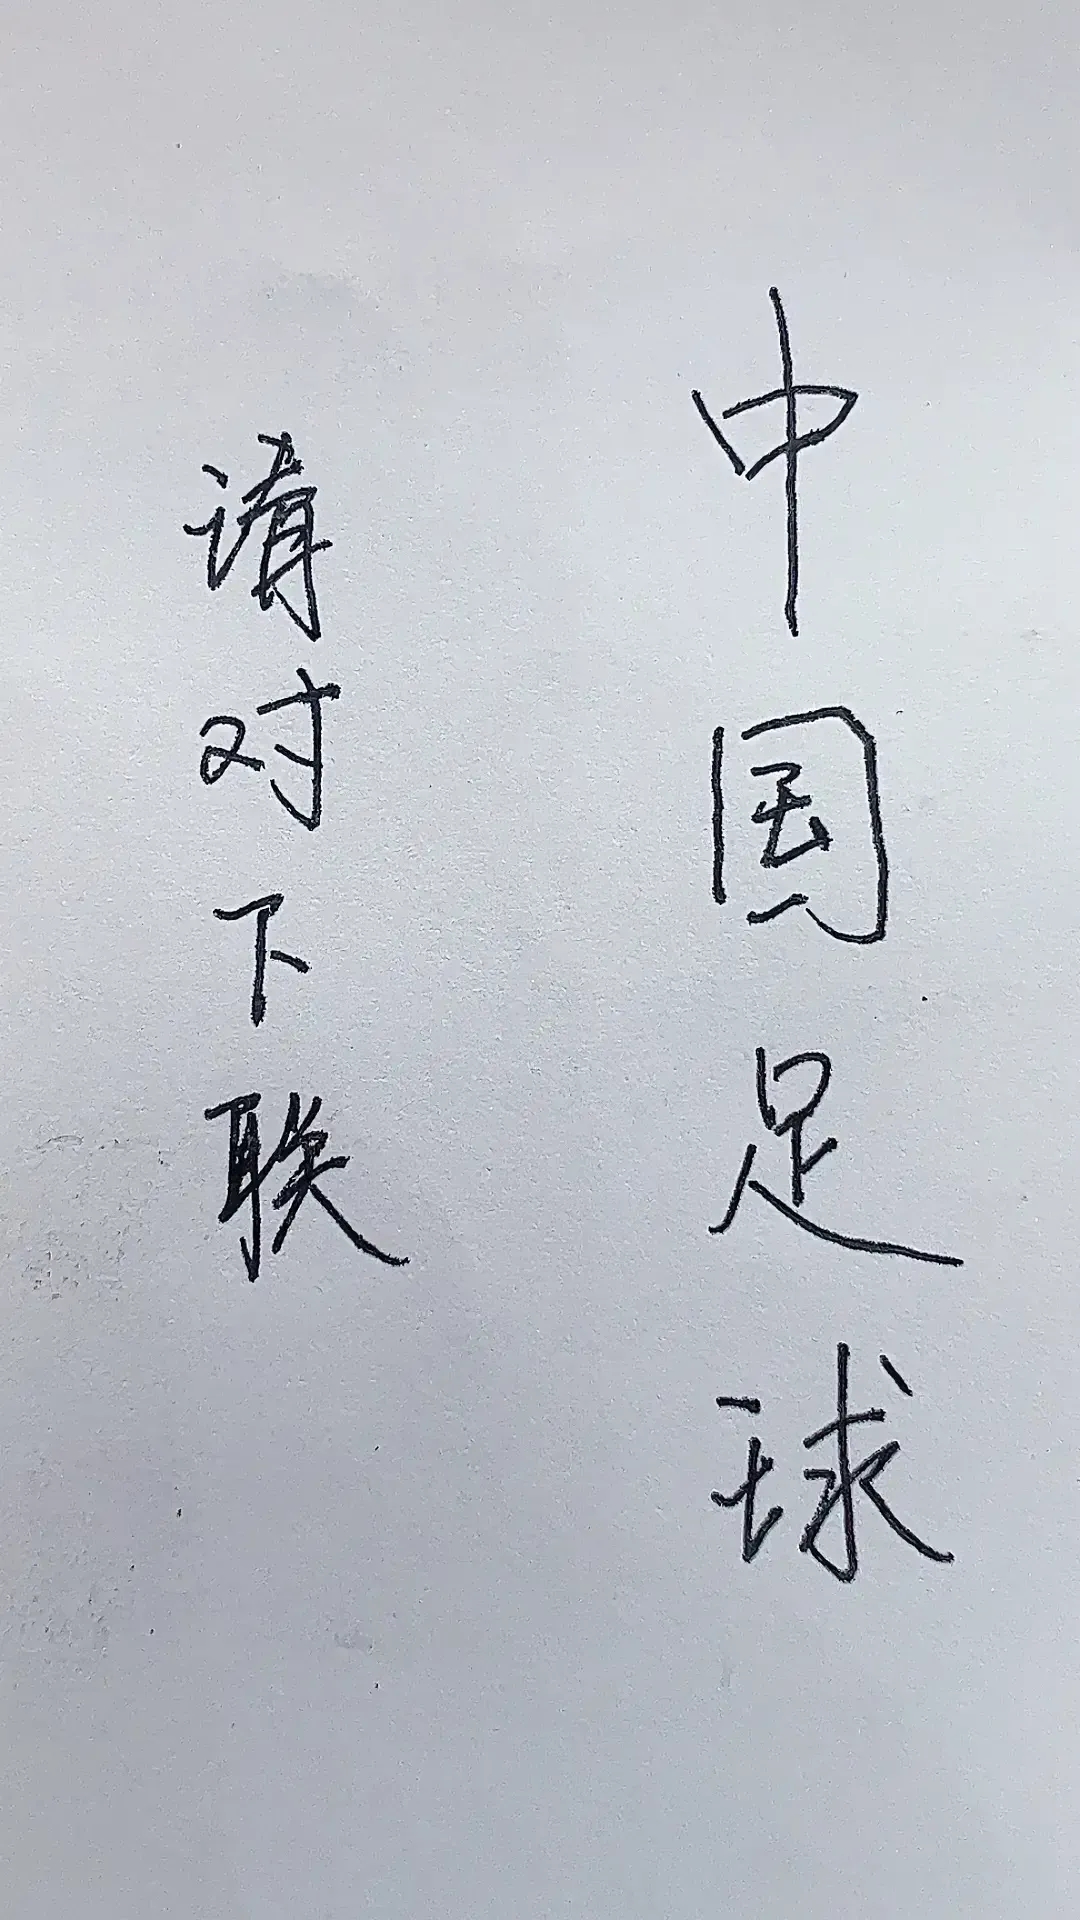 中国足球
请对下联